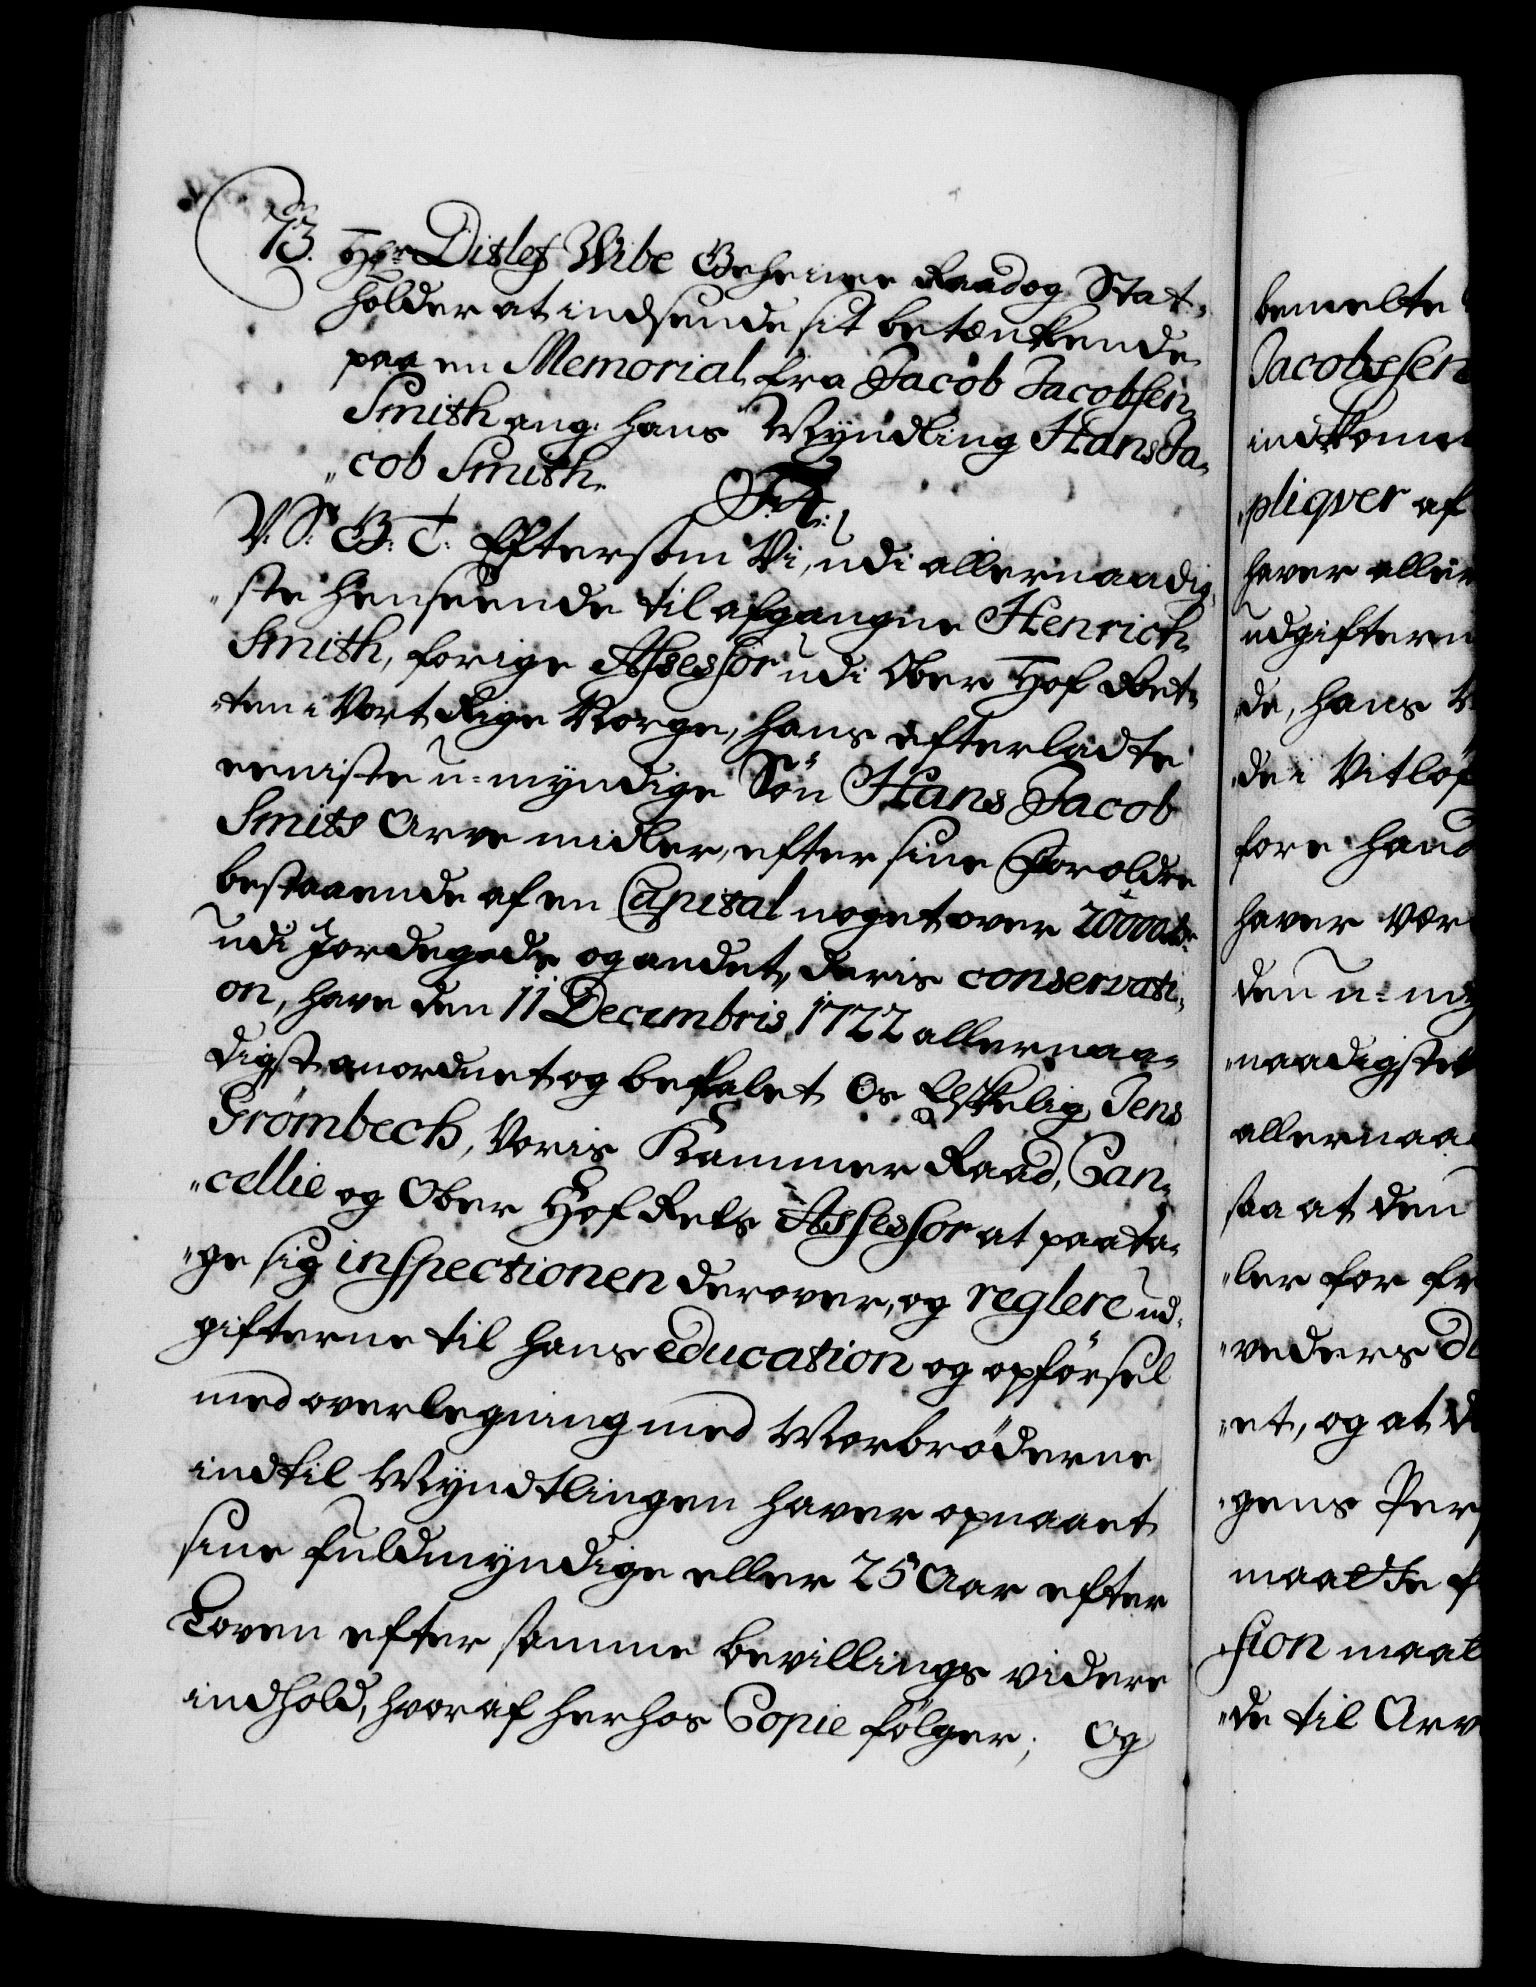 73. Hr Ditlef Wibe Geheime Raad og Stat-
holder at indsende sit betænkende
paa en Memorial fra Jacob Jacobsen
Smith ang. hans Myndling Hans Ja-
cob Smith.
F. 4.
V. S. G. T. Eftersom Vi, udi allernaadig-
ste henseende til afgangne Henrich
Smith, forige Assessor udi Ober Hof Ret-
ten i Vort Rige Norge, hans efterladte
eeniste u-myndige Sön Hans Jacob
Smits Arve midler, efter sine Foroldre
bestaaende af en Capital noget over 20000 rdr
udi Jordegods og andet, deris conservati-
on, have den 11 Decembris 1722 allernaa-
digst anordnet og befalet Os Elskelig Jens
Grømbech, Voris Kammer Raad, Can-
cellie og Ober Hof Rets Assessor at paata-
ge sig inspectionen derover, og reglere ud-
gifterne til hans education og opförsel
med overlegning med Morbröderne
indtil Myndtlingen haver opnaaet
sine fuldmyndige eller 25 Aar efter
Loven efter samme bevillings videre
indhold, hvoraf herhos Copie fölger; Og
bemelte
Jacobssen
indkomm
pliqver af
haver aller
udgiftern
de, hans
de i Vitlöf
fore hand
haver vær
den u-my
naadigst
allernaa
saa at den
ler for fr
veders
et, og at d
gens Per
maatte f
sion maat
de til Arv